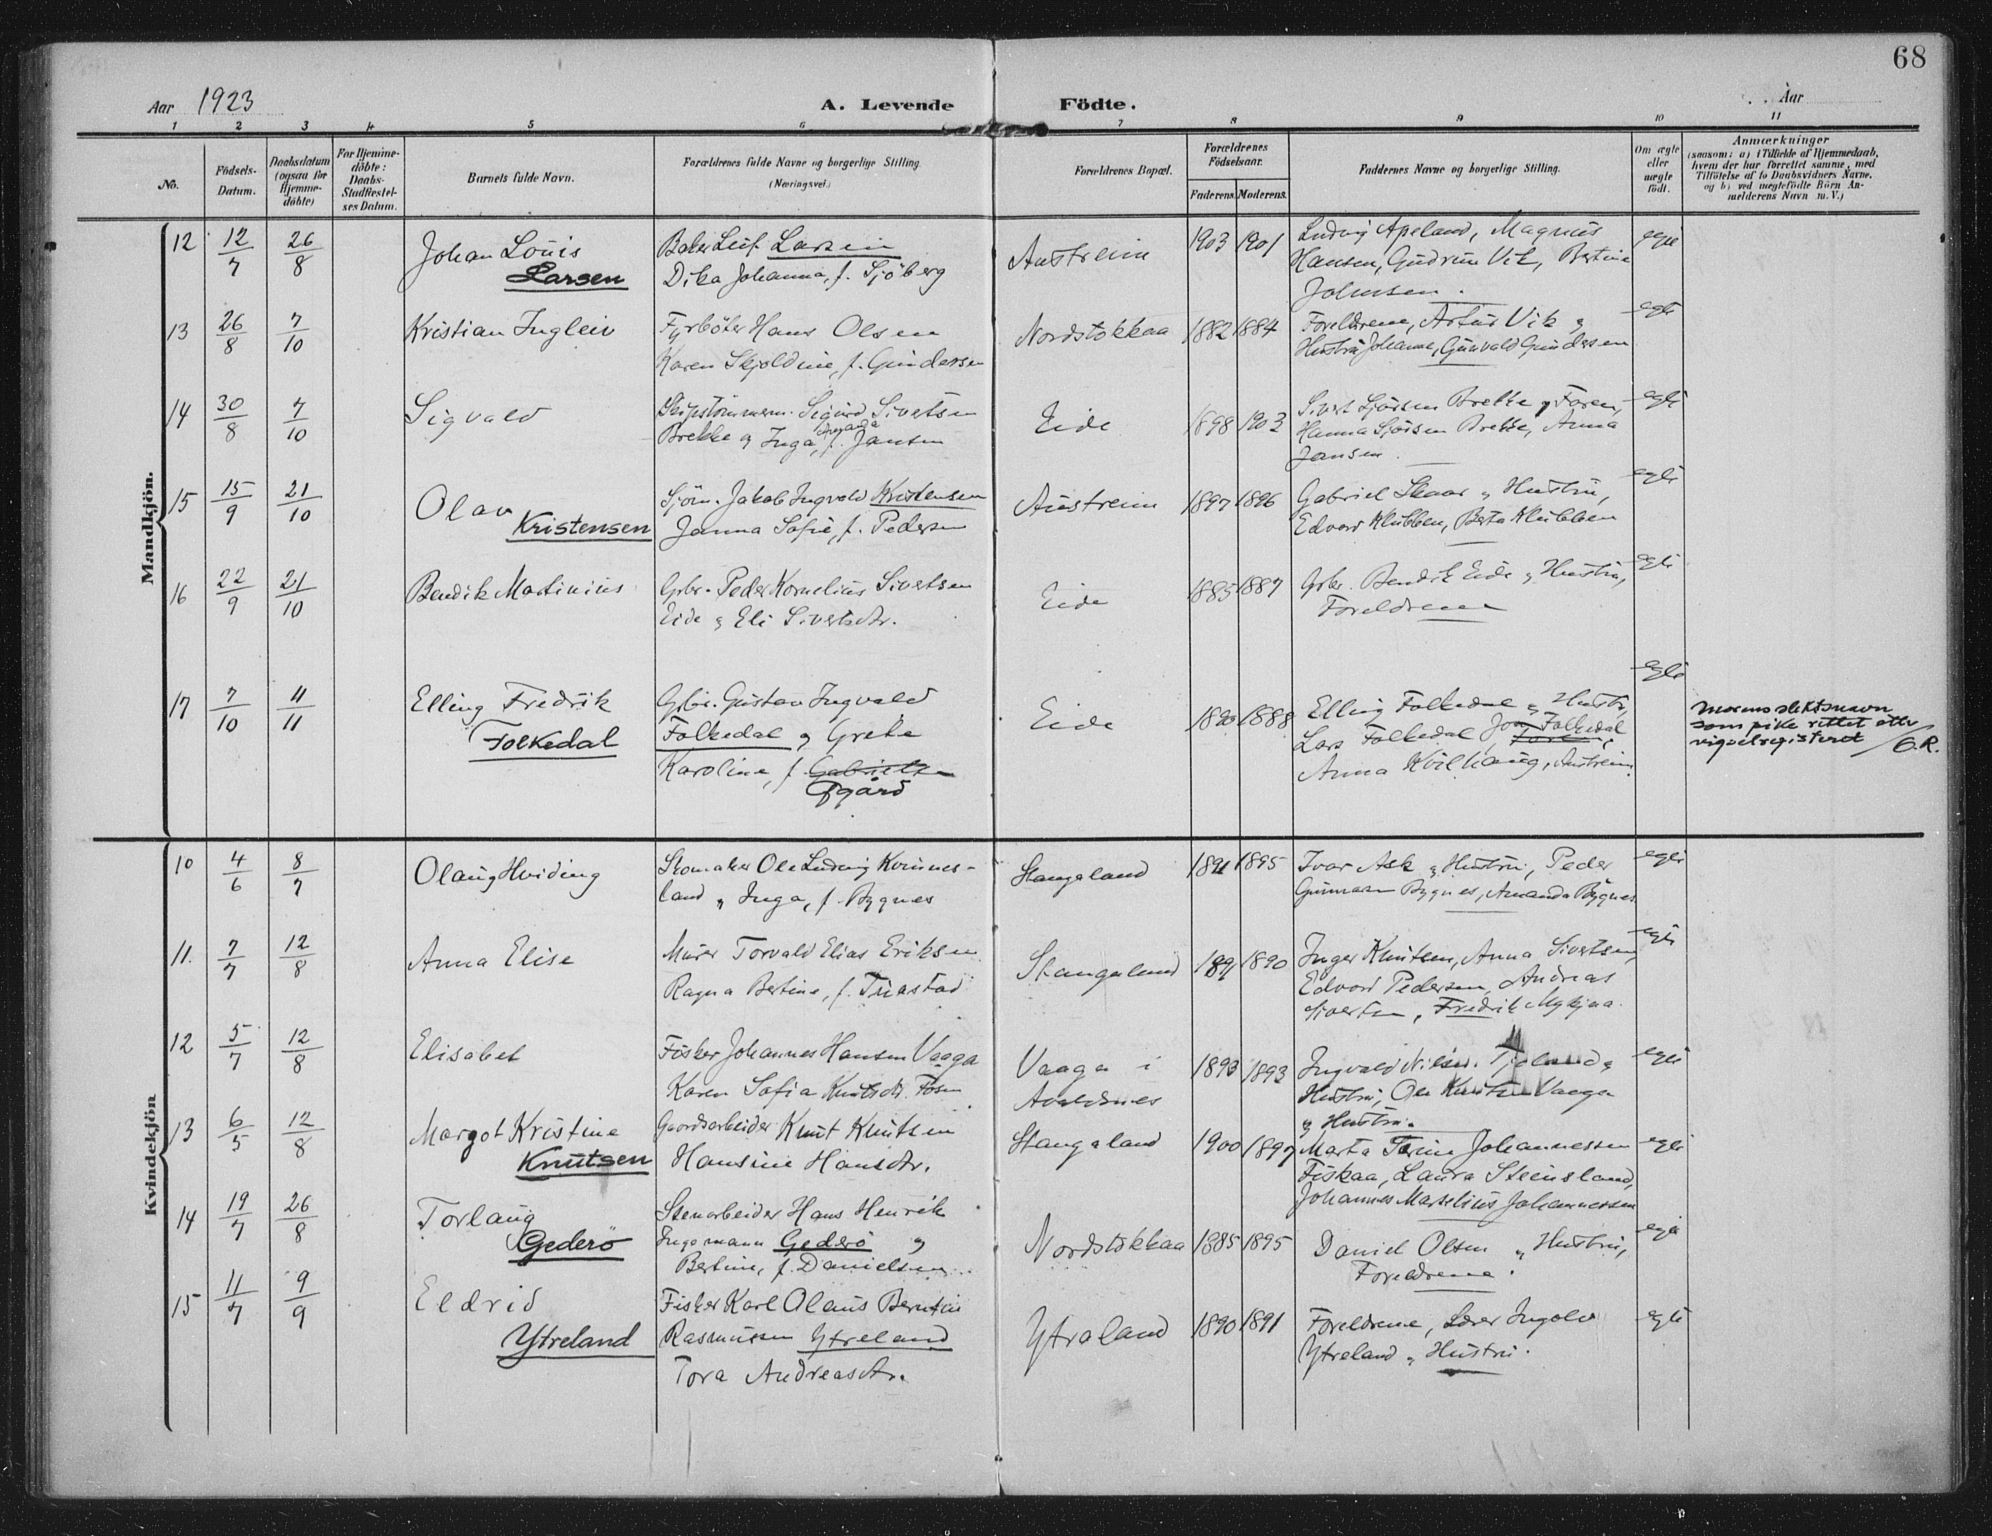 68
Aar 1923
A. Levende
Födte.
Aar
1 2 3 4 5 6 7 8 9 10 11
No.
Födsels-
Datum.
Daabsdatum
(ogsaa for
Hjemme-
döbte)
For Hjemme-
döbte:
Daabs-
Stadfæstel-
ses Datum.
Barnets fulde Navn.
Forældrenes fulde Navne og borgerlige Stilling.
(Næringsvei.)
Forældrenes Bopæl.
Forældrenes
Födselsaar.
Faderens.
Moderens.
Faddernes Navne og borgerlige Stilling.
Om ægte
eller
uægte
födt.
Anmærkninger
(saasom: a) i Tilfælde af Hjemmedaab,
hvem der har forrettet samme, med
Tilföielse af to Daabsvidners Navne,
og b) ved uægtefödte Börn An-
melderens Navn m. V.)
Mandkjön.
12 12/7 26/8 Johan Louis
Larsen
Baker Leif Larsen
Dika Johanna, f. Sjöberg
Austreim
1903 1901
Ludvig Apeland, Magnus
Hansen, Gudrun Vik, Bertine
Johnsen.
egte
13 26/8 7/10 Kristian Ingleiv
Fyrböter Hans Olsen
Karen Skjoldine, f. Gundersen
Nordstokkaa
1882 1884
Foreldrene, Artur Vik og
Hustru Johanne, Gunvald Gundersen
egte
14 30/8 7/10 Sigvald
Skipstömmerm. Sigurd Sivertsen
Brekke og Inga, f. Jansen
Eide
1898 1903
Sivert Sjursen Brekke og Faren,
Hanna Sjursen Brekke, Anna
Jansen.
egte
15 15/9 21/10 Olav
Kristensen
Sjöm. Jakob Ingvald Kristensen
Janna Sofie, f. Pedersen
Austreim
1897 1896
Gabriel Skaar og Hustru,
Edvard Klubben, Berta Klubben
egte
16 22/9 21/10 Bendik Martinius
Grbr. Peder Kornelius Sivertsen
Eide og Eli Sivertsdtr.
Eide
1885 1887
Grbr. Bendik Eide og Hustru,
Foreldrene
egte
17 7/10 11/11 Elling Fredrik
Folkedal
Grbr. Gustav Ingvald
Folkedal og Grete
Karoline, f. Gabrielsen
Øygård
Eide
1890 1888
Elling Folkedal og Hustru,
Lars Folkedal, Jon Folkedal
Anna Kvilhaug, Austreim.
egte
Morens slektsnavn
som pike rettet etter
vigselsregisteret /G.R.
Kvindekjön
10 4/6 8/7 Olaug Hviding
Skomaker Ole Ludvig Kvinnes-
land og Inga, f. Bygnes
Stangeland
1891 1895
Ivar Ask og Hustru, Peder
Gunnarsen Bygnes, Amanda Bygnes
egte
11. 7/7 12/8 Anna Elise
Murer Torvald Elias Eriksen
Ragna Bertine, f. Tuastad
Stangeland
1891 1890
Inger Knutsen, Anna Sivertsen,
Edvard Pedersen, Andreas
Sivertsen, Fredrik Mykjaa.
egte
12 5/7 12/8 Elisabet
Fisker Johannes Hansen Vaaga
Karen Sofia Knutsdtr. Fosen
Vaaga i
Avaldsnes
1893 1893
Ingvald Nilsen Tjoland og
Hustru, Ole Knutsen Vaaga
og Hustru.
egte
13 6/5 12/8 Margot Kristine
Knutsen
Gaardsarbeider Knut Knutsen
Hansine Hansdtr.
Stangeland
1900 1897
Marta Terine Johannessen
Fiskaa, Laura Steinsland,
Johannes Marselius Johannessen
egte
14 19/7 26/8 Torlaug
Gederö
Stenarbeider Hans Henrik
Ingemann Gederö og
Bertine, f. Danielsen.
Nordstokkaa
1885 1895
Daniel Olsen og Hustru,
Foreldrene.
egte
15 11/7 9/9 Eldrid
Ytreland
Fisker Karl Olaus Berntin
Rasmussen Ytreland
Tora Andreasdtr.
Ytreland
1890 1891
Foreldrene, Lærer Ingolv
Ytreland og Hustru.
egte